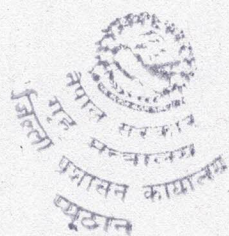 नेपाल सरकार
गृह मन्त्रालय
जिल्ला प्रशासन कार्यालय
प्यूठान